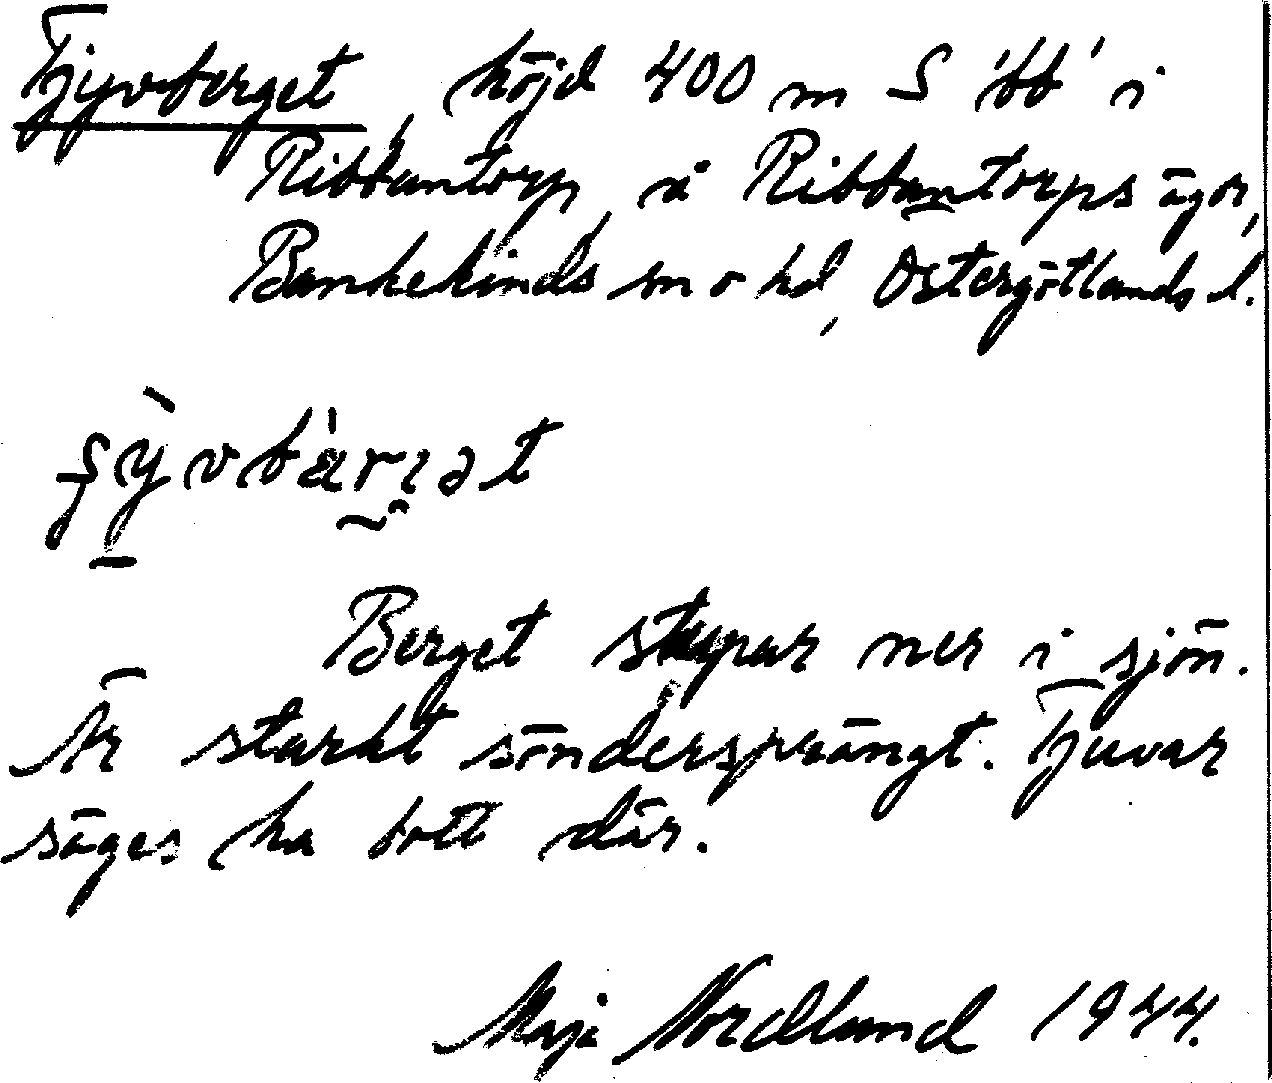 Tjyvberget, höjd 400 m S 'bb' i
Ribbantorp, å Ribbantorps ägor,
Bankekinds sn o hd, Östergötlands l.
Berget stupar ner i sjön.
Är starkt söndersprängt. Tjuvar
säges ha bott där.
Maja Nordlund 1944.